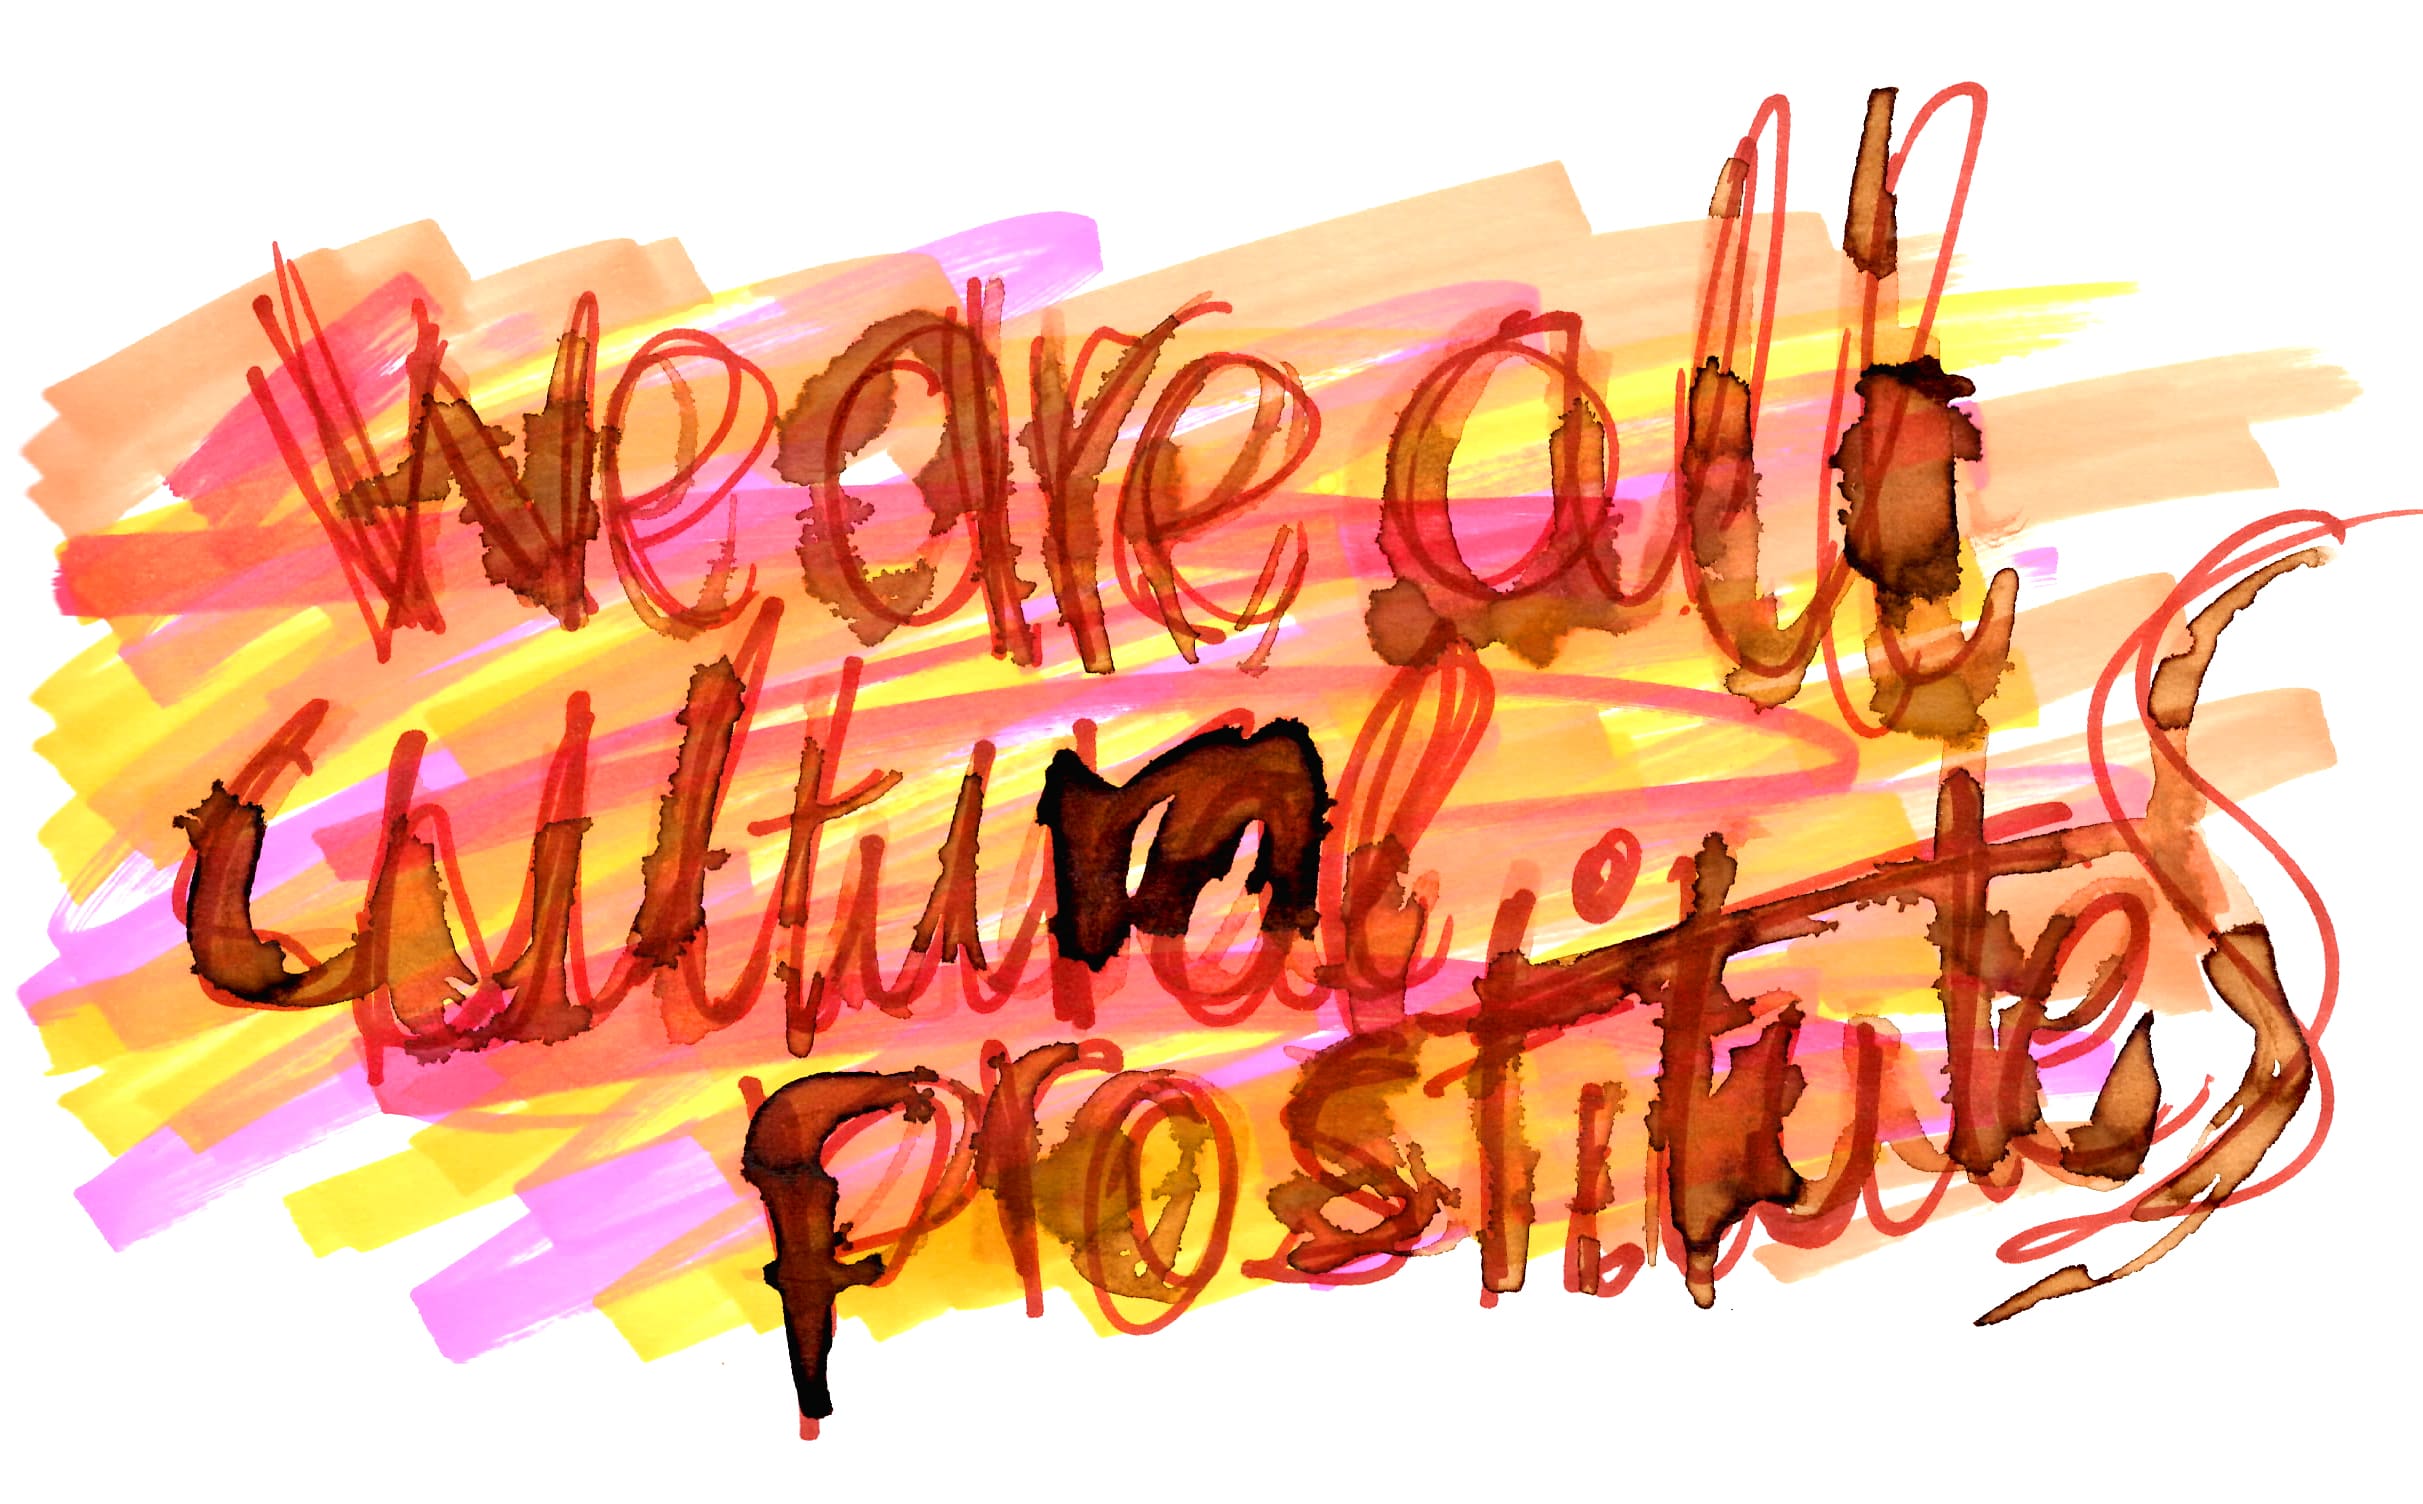 We are all
cultural
prostitutes